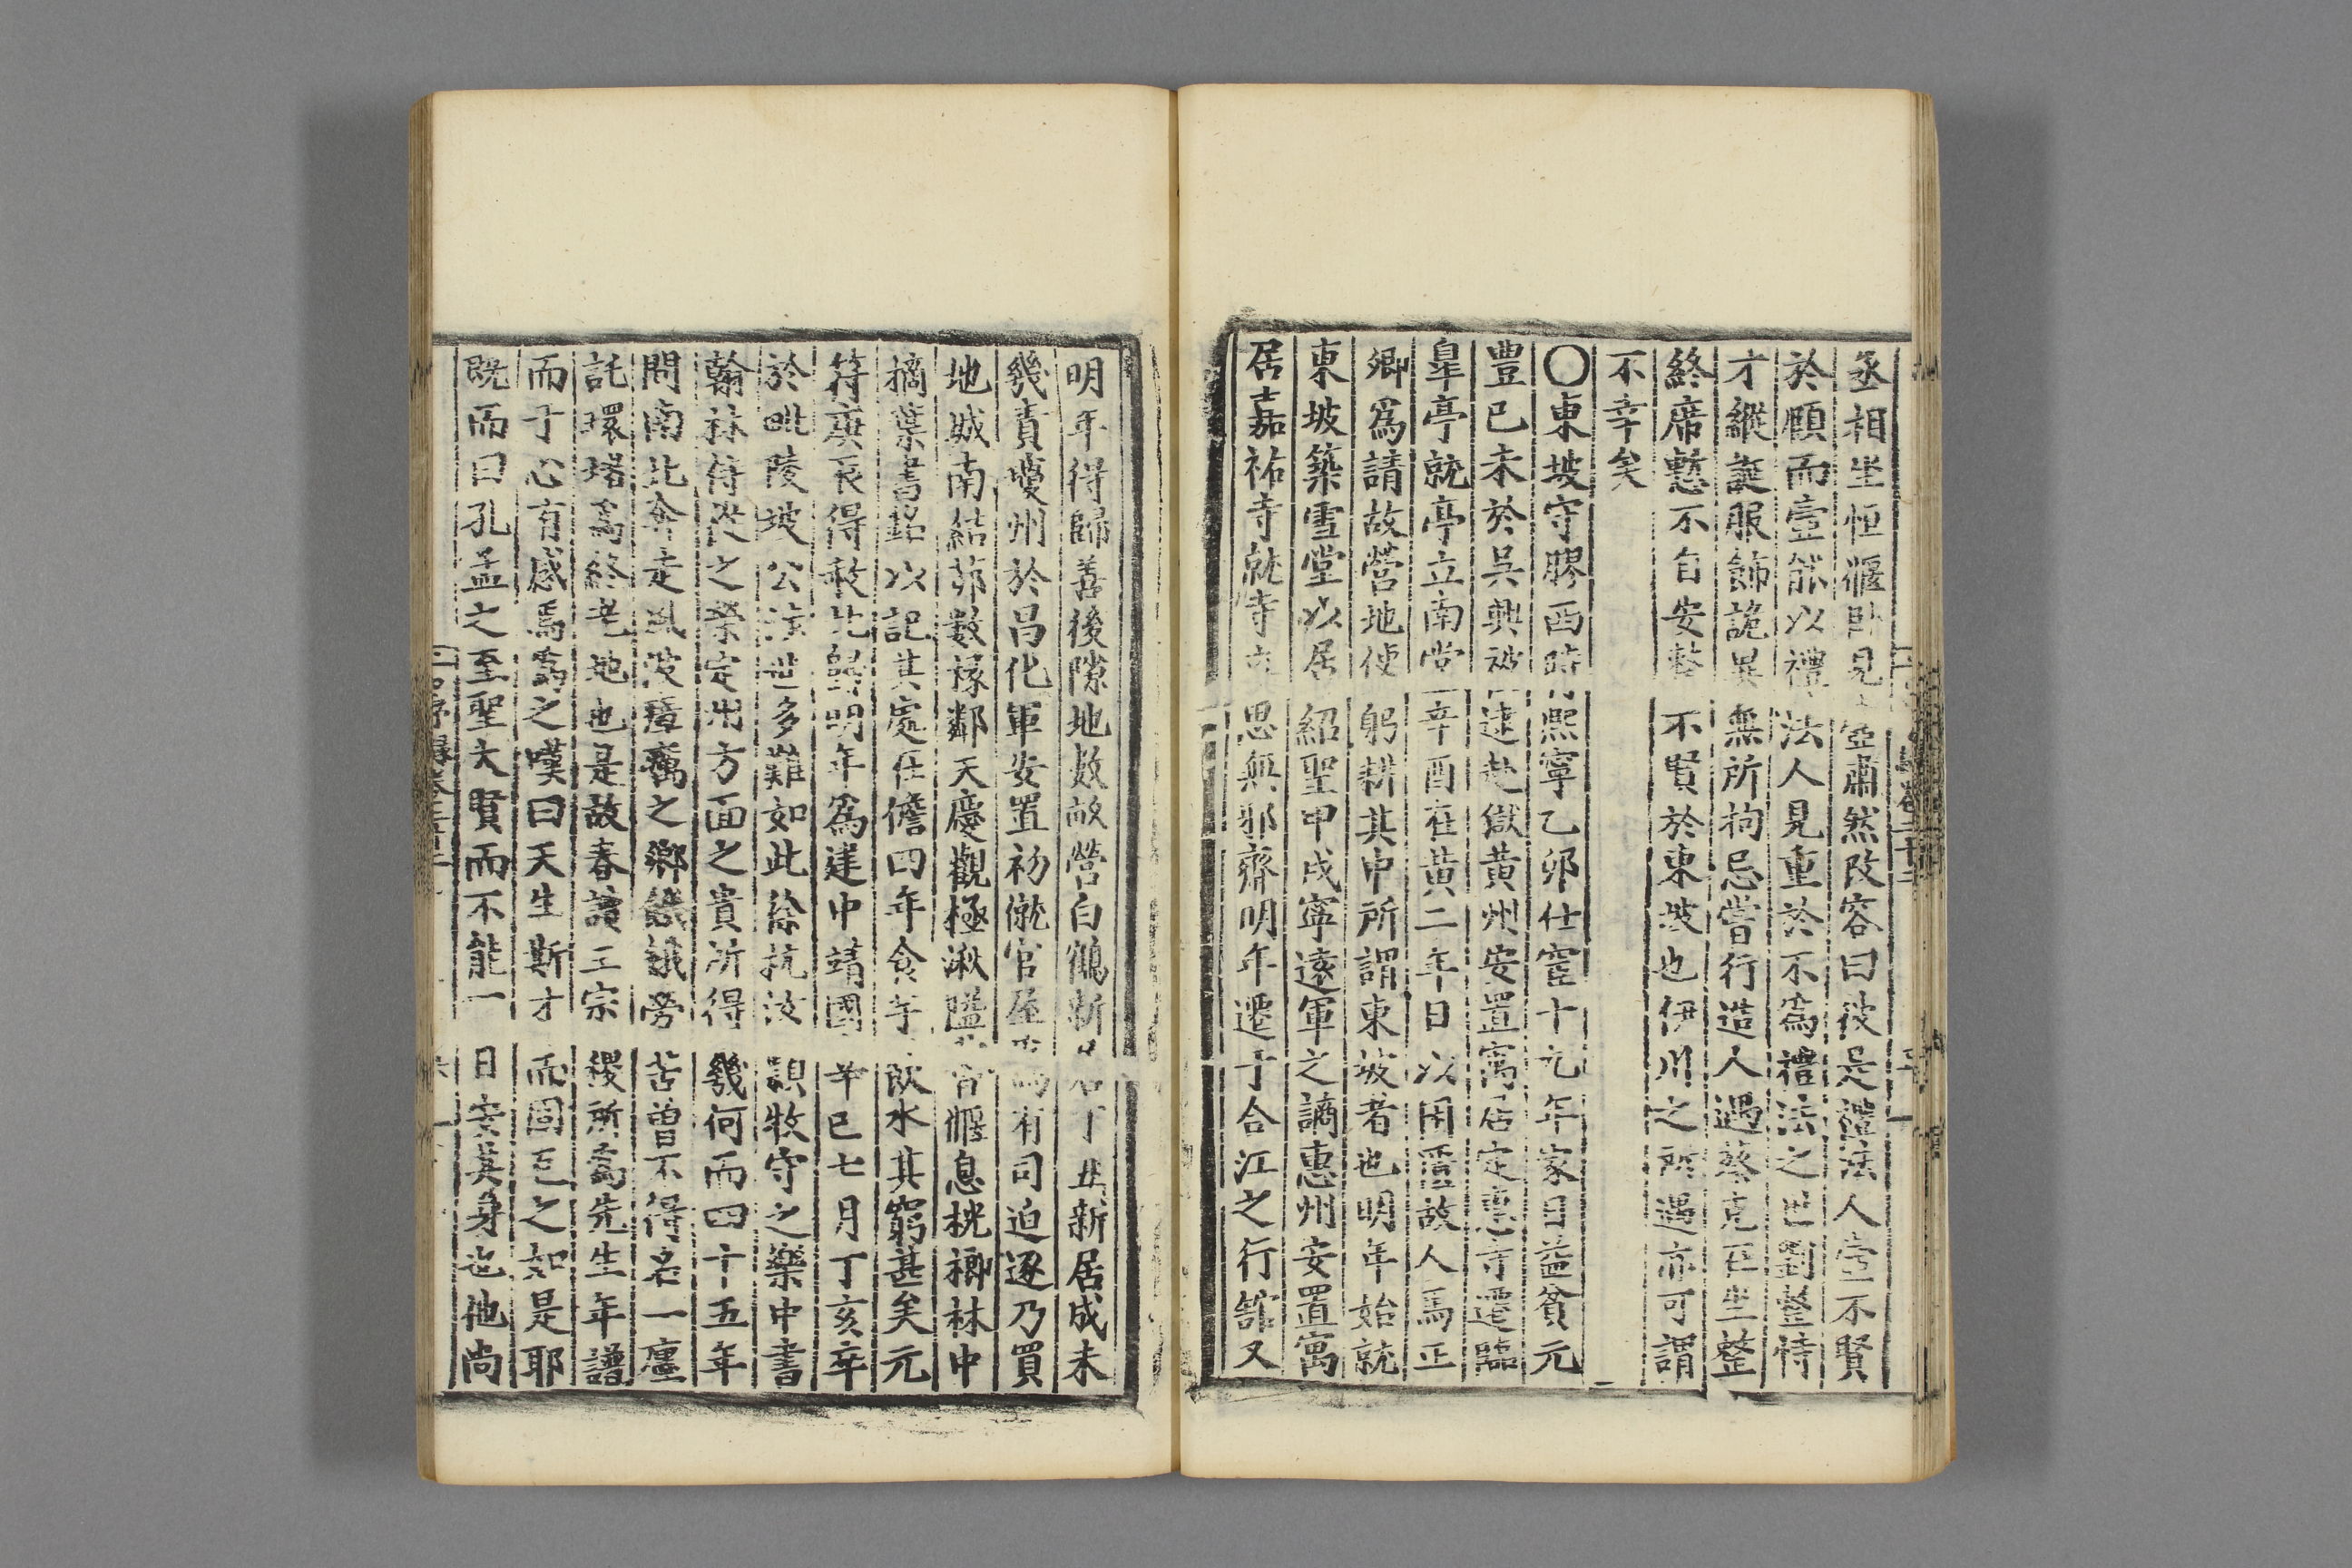 丞相坐恒偃卧見壺肅然改容曰彼是禮法人壺不賢
於顧而壹能以禮法人見重於不為禮法之世劉整恃
才縱誕服飾詭異無所拘忌嘗行造人遇蔡克在坐整
終席慙不自安整不賢於東坡也伊川之所遇亦可謂
不幸矣
〇東坡守膠西時熙寧乙卯仕宦十九年家日益貧元
豊己未於吴興被逮赴獄黄州安置寓居定惠寺遷臨
皐亭就亭立南堂辛酉在黄二年日以困匱故人馬正
卿為請故營地使躬耕其中所謂東坡者也明年始就
東坡築雪堂以居紹聖甲戌寧遠軍之謫惠州安置寓
居嘉祐寺就寺立思無邪齋明年遷于合江之行館又
明年得歸善後隙地数畝營白鶴新居丁丑新居成未
幾責瓊州於昌化軍安置初僦官屋有司迫逐乃買
地城南結茆數椽鄰天慶觀極湫隘偃息桄榔林中
摘葉書銘以記其處在儋四年食芋飲水其窮甚矣元
符庚辰得赦北歸明年為建中靖國辛巳七月丁亥卒
於毗陵坡公涉世多難如此徐杭汝頴牧守之樂中書
翰林侍從之榮定州方面之貴所得幾何而四十五年
間南北奔走風波瘴癘之鄉飢餓勞苦曾不得名一廛
託環堵為終老地也是故春讀王宗稷所為先生年譜
而于心有感焉為之嘆曰天生斯才而固厄之如是耶
既而曰孔孟之至聖大賢而不能一日安其身也他尚